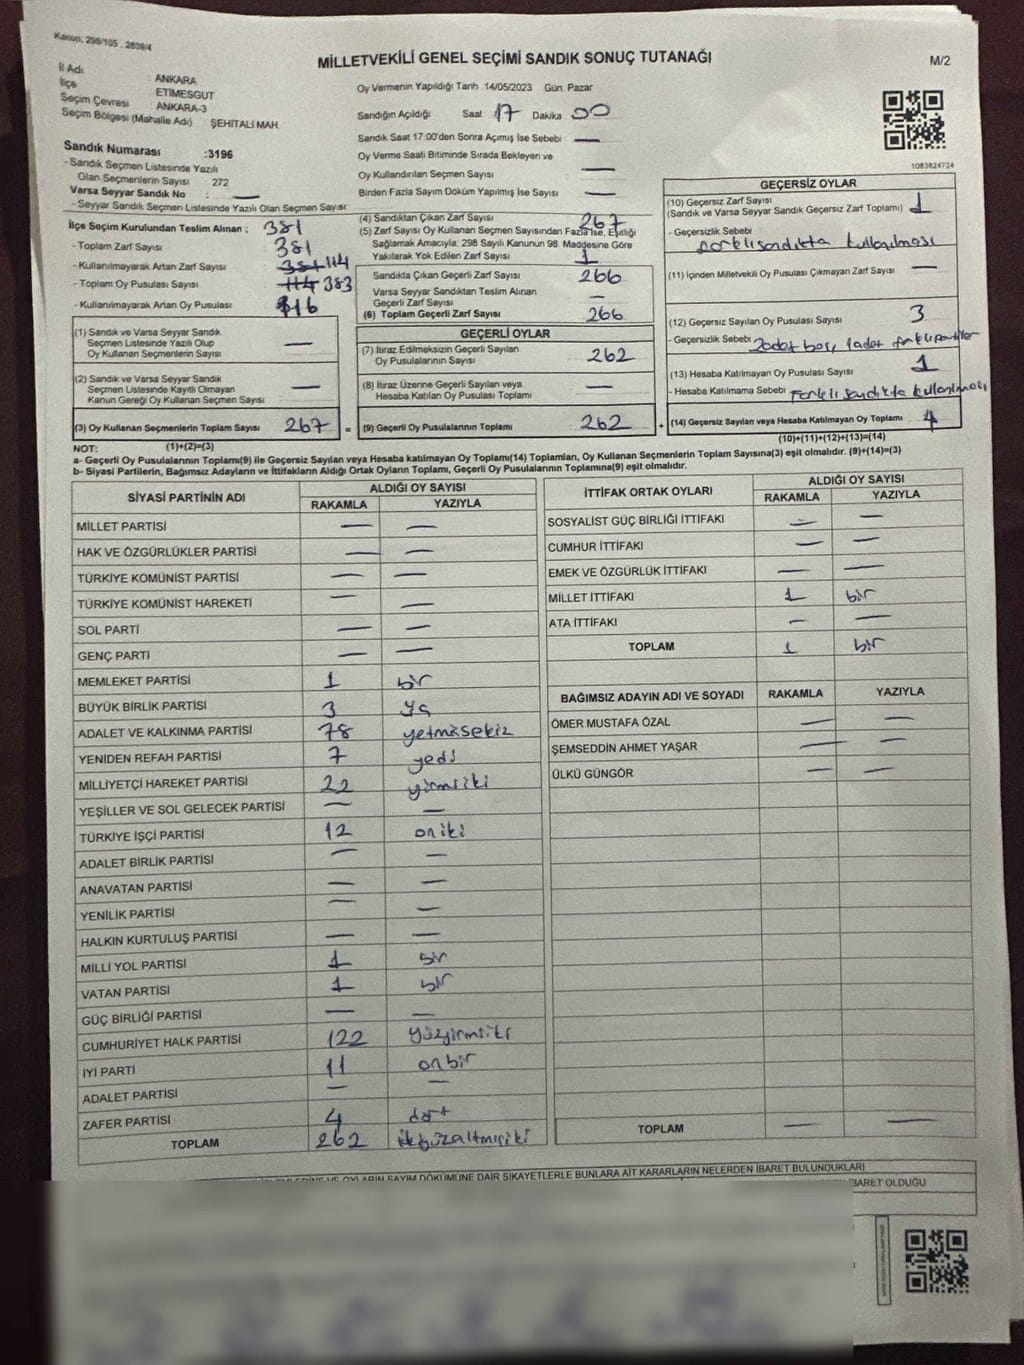 Kanun: 298/105 . 2839/4
MİLLETVEKİLİ GENEL SEÇİMİ SANDIK SONUÇ TUTANAĞI
M/2
İl Adı : ANKARA
İlçe : ETİMESGUT
Seçim Çevresi : ANKARA-3
Seçim Bölgesi (Mahalle Adı) : ŞEHİTALİ MAH.
Sandık Numarası :3196
- Sandık Seçmen Listesinde Yazılı
Olan Seçmenlerin Sayısı : 272
Varsa Seyyar Sandık No : —
- Seyyar Sandık Seçmen Listesinde Yazılı Olan Seçmen Sayısı:
Oy Vermenin Yapıldığı Tarih 14/05/2023 Gün: Pazar
Sandığın Açıldığı Saat 17 Dakika 00
Sandık Saat 17:00'den Sonra Açımış İse Sebebi —
Oy Verme Saati Bitiminde Sırada Bekleyen ve
Oy Kullandırılan Seçmen Sayısı —
Birden Fazla Sayım Döküm Yapılmış İse Sayısı —
1083824734
İlçe Seçim Kurulundan Teslim Alınan : 381
- Toplam Zarf Sayısı 381
- Kullanılmayarak Artan Zarf Sayısı 381 114
- Toplam Oy Pusulası Sayısı 114 383
- Kullanılmayarak Artan Oy Pusulası 116
(1) Sandık ve Varsa Seyyar Sandık
Seçmen Listesinde Yazılı Olup
Oy Kullanan Seçmenlerin Sayısı —
(2) Sandık ve Varsa Seyyar Sandık
Seçmen Listesinde Kayıtlı Olmayan
Kanun Gereği Oy Kullanan Seçmen Sayısı —
(3) Oy Kullanan Seçmenlerin Toplam Sayısı 267 =
(1)+(2)=(3)
(4) Sandıktan Çıkan Zarf Sayısı 267
(5) Zarf Sayısı Oy Kullanan Seçmen Sayısından Fazla İse, Eşitliği
Sağlamak Amacıyla, 298 Sayılı Kanunun 98. Maddesine Göre
Yakılarak Yok Edilen Zarf Sayısı 1
Sandıkta Çıkan Geçerli Zarf Sayısı 266
Varsa Seyyar Sandıktan Teslim Alınan
Geçerli Zarf Sayısı —
(6) Toplam Geçerli Zarf Sayısı 266
GEÇERLİ OYLAR
(7) İtiraz Edilmeksizin Geçerli Sayılan
Oy Pusulasının Sayısı 262
(8) İtiraz Üzerine Geçerli Sayılan veya
Hesaba Katılan Oy Pusulası Toplamı —
(9) Geçerli Oy Pusulalarının Toplamı 262 +
GEÇERSİZ OYLAR
(10) Geçersiz Zarf Sayısı
(Sandık ve Varsa Seyyar Sandık Geçersiz Zarf Toplamı) 1
- Geçersizlik Sebebi
Farklı sandıkta kullanılması
(11) İçinden Milletvekili Oy Pusulası Çıkmayan Zarf Sayısı —
(12) Geçersiz Sayılan Oy Pusulası Sayısı 3
- Geçersizlik Sebebi 2adet boş, 1adet farklı partiler
(13) Hesaba Katılmayan Oy Pusula Sayısı 1
- Hesaba Katılmama Sebebi Farklı sandıkta kullanılması
(14) Geçersiz Sayılan veya Hesaba Katılmayan Oy Toplamı 4
(10)+(11)+(12)+(13)=(14)
NOT:
a- Geçerli Oy Pusulalarının Toplamı(9) ile Geçersiz Sayılan veya Hesaba katılmayan Oy Toplamı(14) Toplamları, Oy Kullanan Seçmenlerin Toplam Sayısına(3) eşit olmalıdır. (9)+(14)=(3)
b- Siyasi Partilerin, Bağımsız Adayların ve İttifakların Aldığı Ortak Oyların Toplamı, Geçerli Oy Pusulalarının Toplamına(9) eşit olmalıdır.
SİYASİ PARTİNİN ADI ALDIĞI OY SAYISI
RAKAMLA YAZIYLA
MİLLET PARTİSİ — —
HAK VE ÖZGÜRLÜKLER PARTİSİ — —
TÜRKİYE KOMÜNİST PARTİSİ — —
TÜRKİYE KOMÜNİST HAREKETİ — —
SOL PARTİ — —
GENÇ PARTİ — —
MEMLEKET PARTİSİ 1 bir
BÜYÜK BİRLİK PARTİSİ 3 üç
ADALET VE KALKINMA PARTİSİ 78 yetmişsekiz
YENİDEN REFAH PARTİSİ 7 yedi
MİLLİYETÇİ HAREKET PARTİSİ 22 yirmiiki
YEŞİLLER VE SOL GELECEK PARTİSİ — —
TÜRKİYE İŞÇİ PARTİSİ 12 oniki
ADALET BİRLİK PARTİSİ — —
ANAVATAN PARTİSİ — —
YENİLİK PARTİSİ — —
HALKIN KURTULUŞ PARTİSİ — —
MİLLİ YOL PARTİSİ 1 bir
VATAN PARTİSİ 1 bir
GÜÇ BİRLİĞİ PARTİSİ — —
CUMHURİYET HALK PARTİSİ 122 yüzyirmiiki
İYİ PARTİ 11 onbir
ADALET PARTİSİ — —
ZAFER PARTİSİ 4 dört
TOPLAM 262 ikiyüzaltmışiki
İTTİFAK ORTAK OYLARI ALDIĞI OY SAYISI
RAKAMLA YAZIYLA
SOSYALİST GÜÇ BİRLİĞİ İTTİFAKI — —
CUMHUR İTTİFAKI — —
EMEK VE ÖZGÜRLÜK İTTİFAKI — —
MİLLET İTTİFAKI 1 bir
ATA İTTİFAKI — —
TOPLAM 1 bir
BAĞIMSIZ ADAYIN ADI VE SOYADI RAKAMLA YAZIYLA
ÖMER MUSTAFA ÖZAL — —
ŞEMSEDDİN AHMET YAŞAR — —
ÜLKÜ GÜNGÖR — —
TOPLAM — —
VE OYLARIN SAYIM DÖKÜMÜNE DAİR ŞİKAYETLERLE BUNLARA AİT KARARLARIN NELERDEN İBARET BULUNDUKLARI
İBARET OLDUĞU